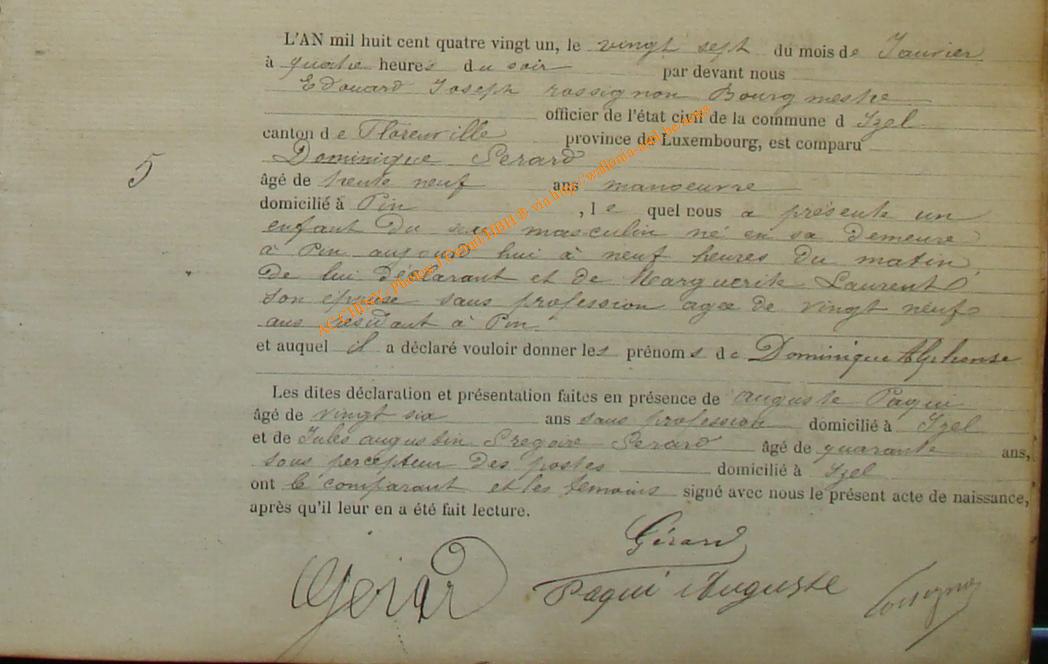 L'AN mil huit cent quatre vingt un, le vingt sept du mois de Janvier
à quatre heures du soir par devant nous
Edouard Joseph rossignon Bourgmestre
officier de l'état civil de la commune d Izel
canton de Florenville province de Luxembourg, est comparu
Dominique Gerard
5
âgé de trente neuf ans manoeuvre
domicilié à Pin , le quel nous a présenté un
enfant du sexe masculin né en sa demeure
à Pin aujourd'hui à neuf heures du matin,
De lui déclarant et de Marguerite Laurent
son épouse sans profession agée de vingt neuf
ans residant à Pin.
et auquel il a déclaré vouloir donner les prénoms de Dominique Alphonse
Les dites déclaration et présentation faites en présence de auguste Paqui
âgé de vingt six ans sans profession domicilié à Izel
et de Jules augustin Gregoire Gerard âgé de quarante ans,
sous percepteur des postes domicilié à Izel
ont le comparant et les temoins signé avec nous le présent acte de naissance,
après qu'il leur en a été fait lecture.
Gérard
Gerard
Paqui Auguste
rossignon